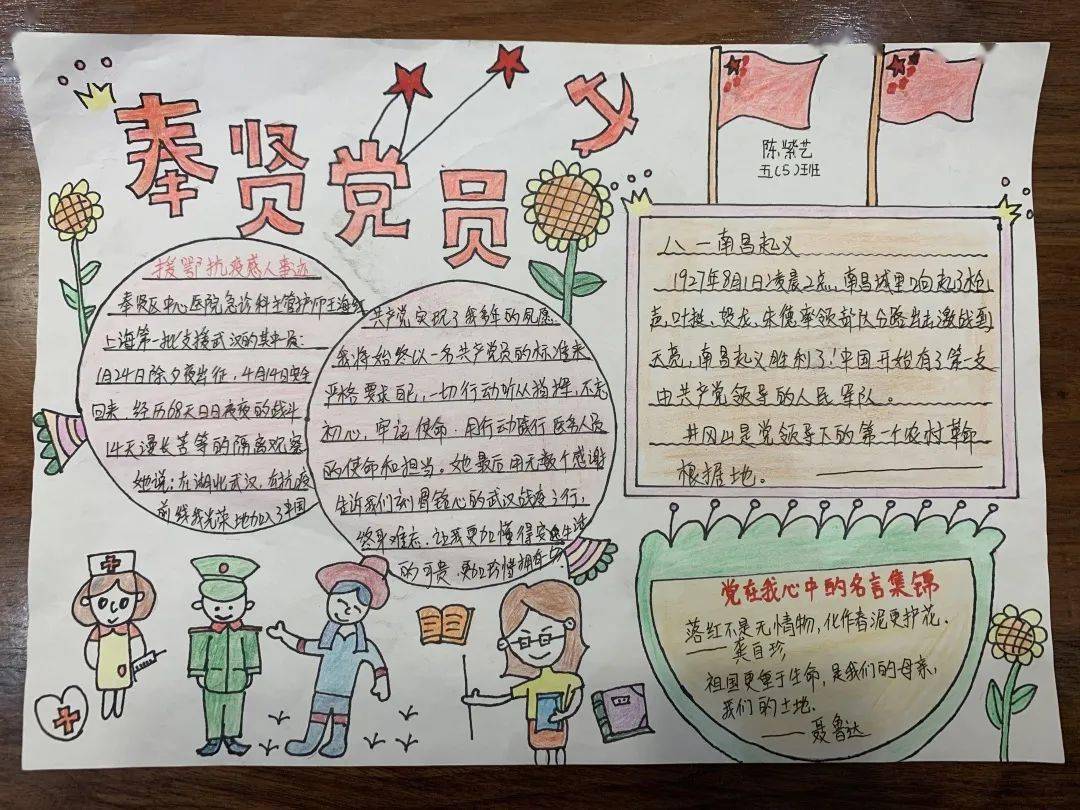 奉贤党员
陈紫艺
五(5)班
援鄂抗疫感人事迹
奉贤区中心医院急诊科主管护师王海红
上海第一批支援武汉的其中一员:
1月24日除夕夜出征,4月14日安全
回来.经历68天日日夜夜的战斗
14天漫长苦等的隔离观察
她说:在湖北武汉,在抗疫
前线我光荣地加入了中国
共产党实现了我多年的夙愿.
我将始终以一名共产党员的标准来
严格要求自己,一切行动听从指挥,不忘
初心,牢记使命.用行动践行医务人员
的使命和担当。她最后用无数个感谢
告诉我们刻骨铭心的武汉战疫之行,
终身难忘、让我更加懂得安
的可贵.更加珍惜拥有
八、一南昌起义
1927年8月1日凌晨2点,南昌城里响起了枪
声,叶挺、贺龙、朱德率领部队分路出击激战到
天亮,南昌起义胜利了!中国开始有了第一支
由共产党领导的人民军队。
井冈山是党领导下的第一个农村革命
根据地。
党在我心中的名言集锦
落红不是无情物,化作春泥更护花.
——龚自珍
祖国更重于生命,是我们的母亲,
我们的土地.
——聂鲁达